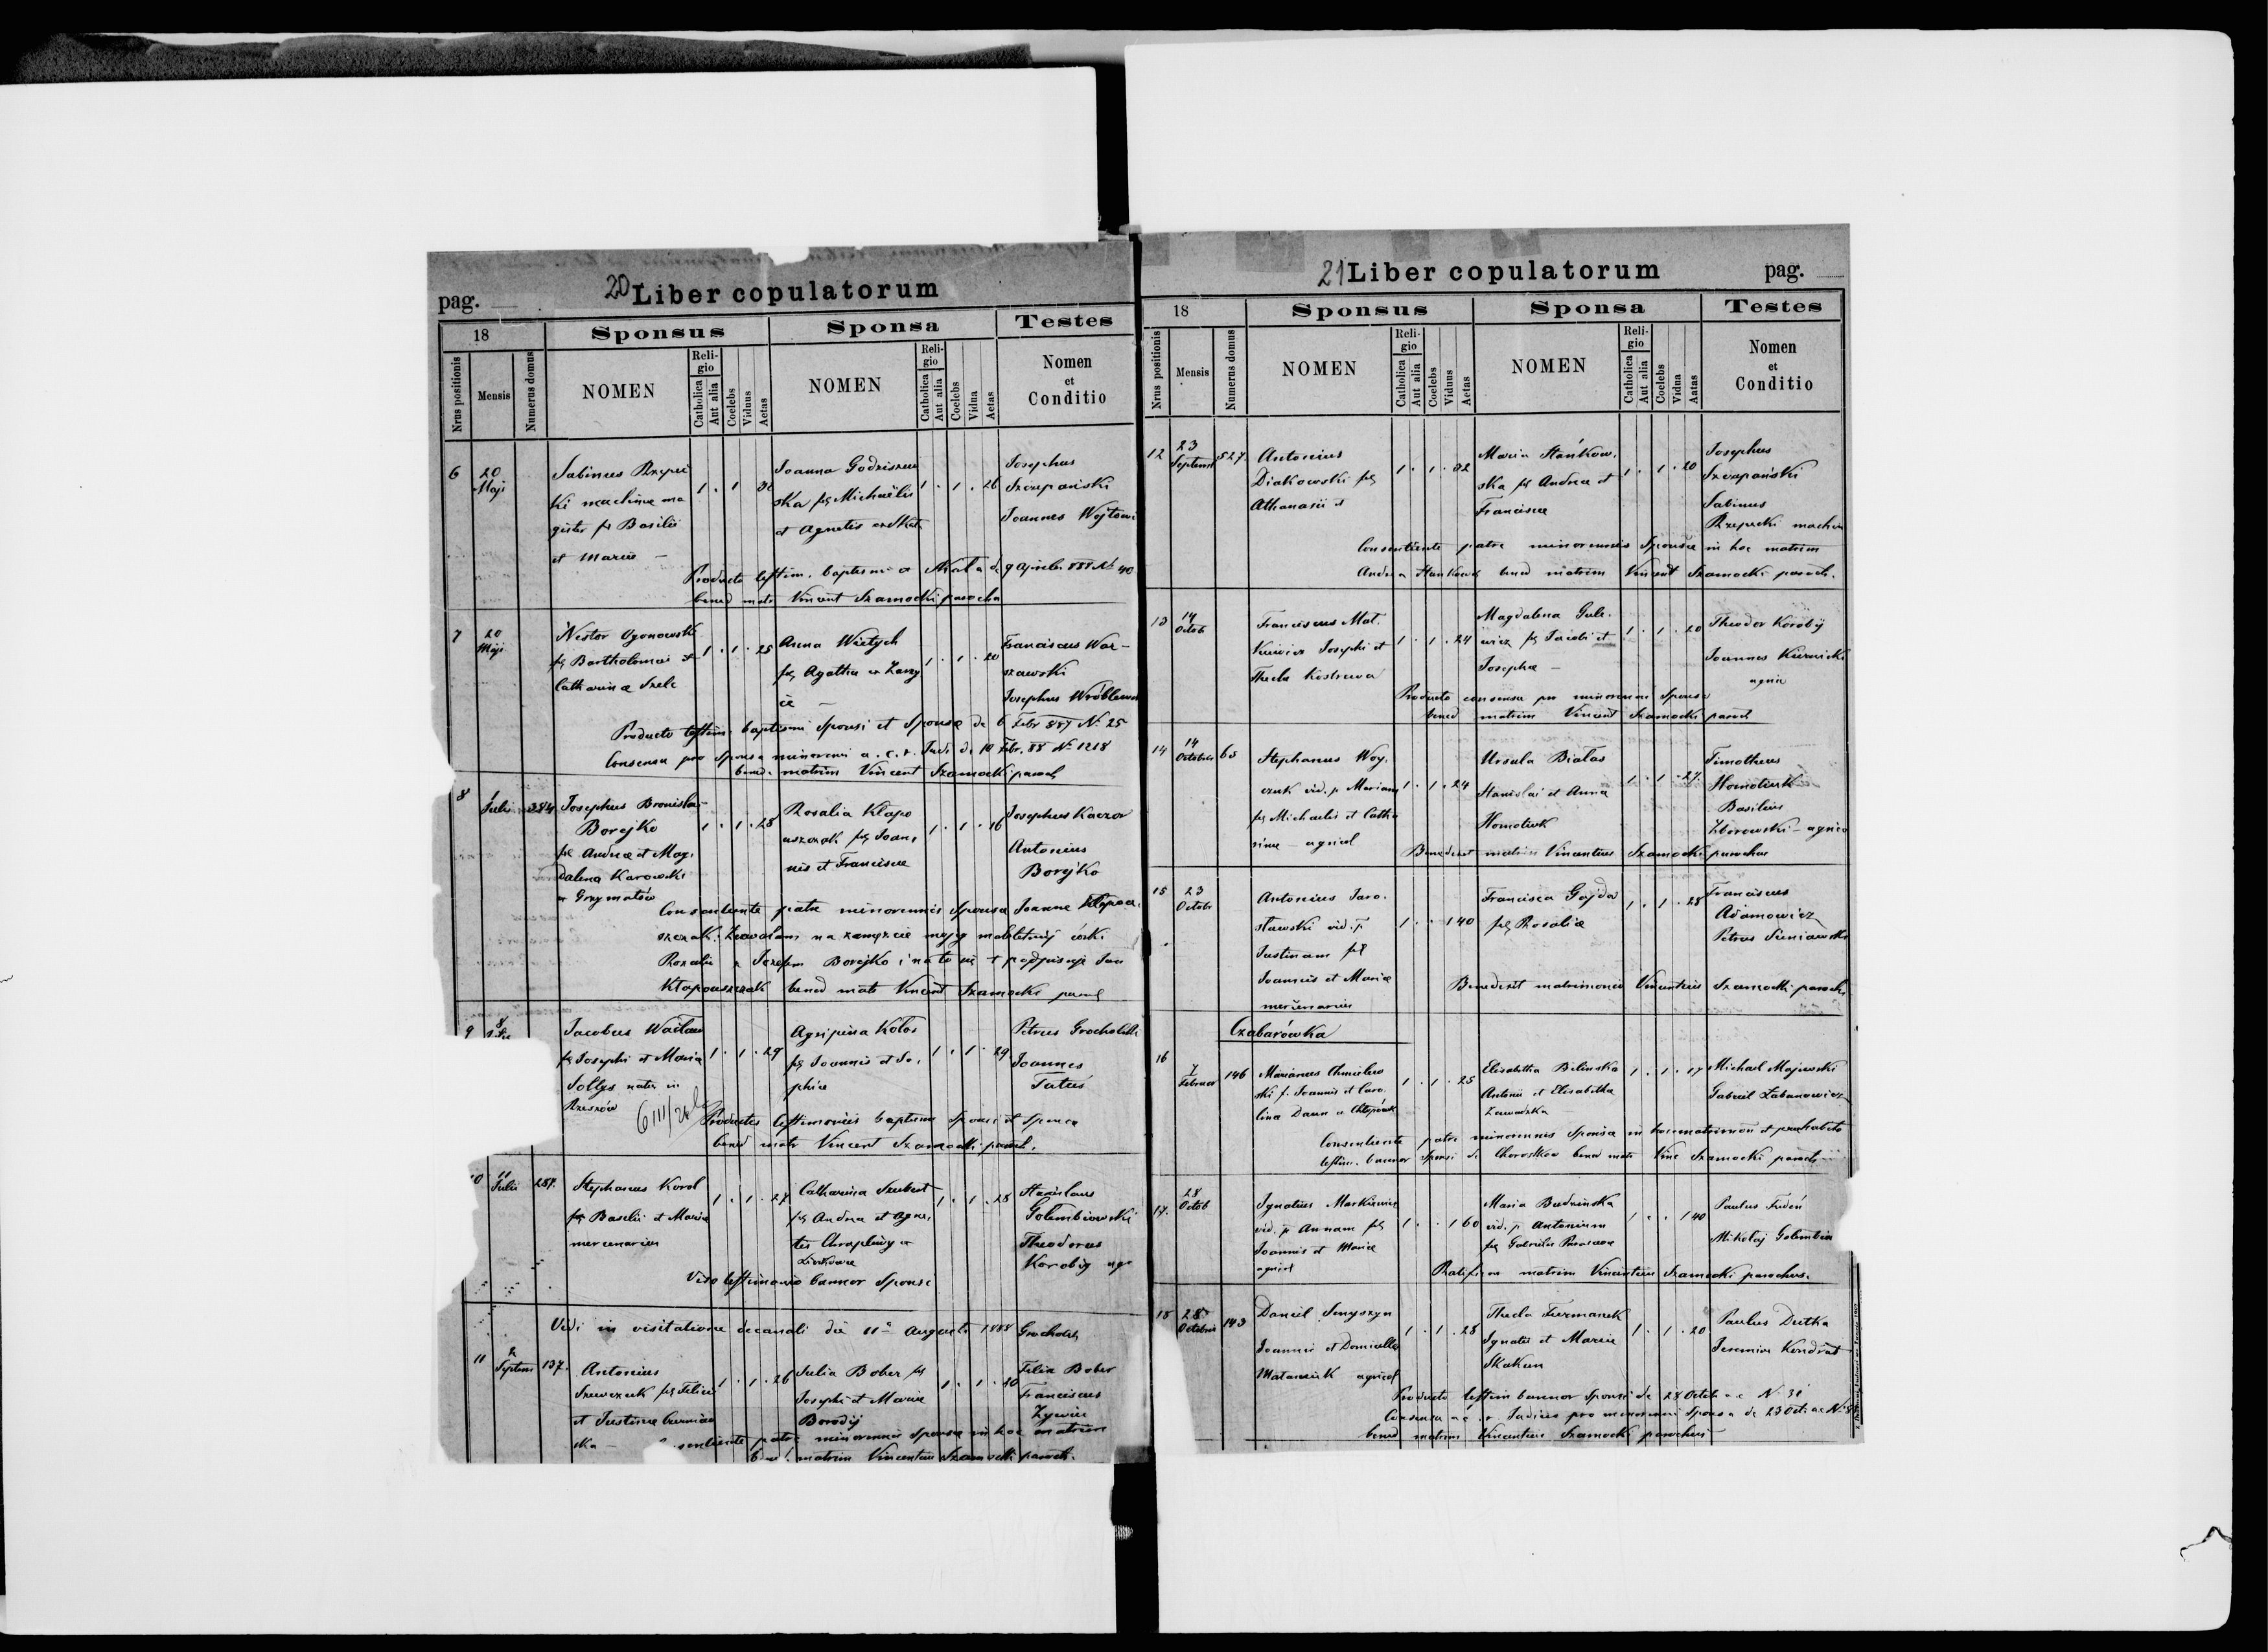 pag.
20 Liber copulatorum
18
Sponsus
Sponsa
Testes
Nrus positionis
Mensis
Numerus domus
NOMEN
Religio
Catholica
Aut alia
Coelebs
Viduus
Aetas
NOMEN
Religio
Catholica
Aut alia
Coelebs
Vidua
Aetas
Nomen
et
Conditio
6
20
Maji
Sabinus Rzepec
ki machinae ma
gister fil Basilii
et Mariae —
1 . 1
Joanna Godziszew
ska fil Michaëlis
et Agnetis ex Skała
1 . 1 . 26
Josephus
Szczepański
Joannes Wojtowi
Producto testim. baptismi a Skała de 9 Aprilis 888 No 40
bened matr Vincent Szamocki parochu
7
20
Maji
Nestor Ogonowski
fil Bartholomei et
Catharina Szelc
1 . 1 . 25
Anna Wietych
fil Agatha ex
1 . 1 . 20
Franciscus War-
szawski
Josephus Wróblewsk
Producto testim. baptismi Sponsi et Sponsae de 6 Febr 887 No 25
Consensu pro Sponsa minorenni a. c. r. Judi de 10 Febr. 88 No 1218
bened matrim Vincent Szamocki paroch
8
1
Julii
384
Josephus Bronislai
Borejko
fil Andreae et Mag.
dalena Karowski
ex Grzymałów
1 . 1 . 28
Rosalia Kłapo
uszczak fil Joan,
nis et Franciscae
1 . 1 . 16
Josephus Kaczor
Antonius
Borejko
Consentiente patre minorennis Sponsa Joanne Kłapou
szczak. Zezwalam na zamęzcie mojej małoletniej córki
Rozalii z Józefem Borejko i na to się + podpisuję Jan
Kłapouszczak bened matr Vincent Szamocki paroch
9
8
Jacobus Wacław
fil Josephi et Maria
Sołtys natus in
Rzeszów
1 . 1 . 29
Agripina Kołos
fil Joannis et So,
phia
1 . 1 . 29
Petrus Grocholski
Joannes
Tatuś
6 III/24
Productis testimoniis baptismi Sponsi et Sponsa
bened matr Vincent Szamocki paroch.
10
11
Julii
287.
Stephanus Korol
fil Basilii et Maria
mercenarius
1 . 1 . 27
Catharina Szubert
fil Andrea et Agne,
tis Chrapliwy ex
1 . 1 . 28
Stanislaus
Gołembiowski
Theodorus
Korobij agr
Viso testimonio bannor Sponsi
Vidi in visitatione decanali die 11a Augusti 1888 Grocholski
11
2
Septem
137.
Antonius
Szewczuk fil Felicis
et Justinae Czernia
ska —
1 . 1 . 26
Julia Bober fil
Josephi et Mariae
Borodij
1 . 1 . 20
Felix Bober
Franciscus
Żywiec
sentiente patre minorennis Sponsae in hoc matrim
bened matrim Vincentius Szamocki paroch.
21 Liber copulatorum
pag.
18
Sponsus
Sponsa
Testes
Nrus positionis
Mensis
Numerus domus
NOMEN
Religio
Catholica
Aut alia
Coelebs
Viduus
Aetas
NOMEN
Religio
Catholica
Aut alia
Coelebs
Vidua
Aetas
Nomen
et
Conditio
12
23
Septem
527.
Antonius
Diakowski fil
Athanasii et
1 . 1 . 32
Maria Stańkow.
ska fil Andrea et
Franciscae
1 . 1 . 20
Josephus
Szczepański
Sabinus
Rzepecki machin
Consentiente patre minorennis Sponsae in hoc matrim
Andrea Stankows bened matrim Vincent Szamocki paroch.
13
14
Octob
Franciscus Mat.
kiewicz Josephi et
Thecla Kostrewa
1 . 1 . 24
Magdalena Gule.
wicz fil Jacobi et
Josephae —
1 . 1 . 20
Theodor Korobij
Joannes Kiernicki
agric
Producto consensu pro minorenni Sponsa
bened matrim Vincent Szamocki paroch
14
14
Octobris
65
Stephanus Woj.
czuk vid. p Mariam
fil Michaelis et Catha
rinae — agricol
1 . 1 . 24
Ursula Białas
Stanislai et Anna
Homotiuk
1 . 1 . 27.
Timotheus
Homotiuk
Basilius
Zborowski — agrico
Benedixit matrim Vincentius Szamocki parochus
15
23
Octobr
Antonius Jaro.
sławski vid. p
Justinam fil
Joannis et Mariae
mercenarius
1 . . 1 40
Francisca Gajda
fil Rosaliae
1 . 1 . 28
Franciscus
Adamowicz
Petrus Sieniawski
Benedixit matrimonio Vincentius Szamocki parochus
Czabarówka
16
7
Februar
146
Marianus Chmielew
ski f. Joannis et Caro.
lina Daun ex
1 . 1 . 25
Elisabetha Bilinska
Antonii et Elisabetha
Zawadzka
1 . 1 . 17
Michael Majewski
Gabriel Łabanowicz
Consentiente patre minorennis Sponsa in hocmatrimon et
testim. bannor Sponsi de Chorostkow bened matr Vinc Szamocki paroch
17.
28
Octob
Ignatius Markiewicz
vid. p Annam fil
Joannis et Maria
agricol
1 . . 1 60
Maria Budzinska
vid. p Antonium
fil Gabrielis
1 . . 1 40
Paulus Fedeń
Mikołaj Golembio
Ratif matrim Vincentius Szamocki parochus.
18
28
Octobris
143
Daniel Smyszyn
Joannis et Domicella
Matasiuk agricol
1 . 1 . 28
Thecla Furmanek
Ignatii et Mariae
Skakun
1 . 1 . 20
Paulus Dutka
Jeremias Kondrat
Producto testim bannor Sponsi de 28 Octob a c N 31
Consensu a c. r. Judicio pro minorenni Sponsa de 23 Oct. ac No
bened matrim Vincentius Szamocki parochus